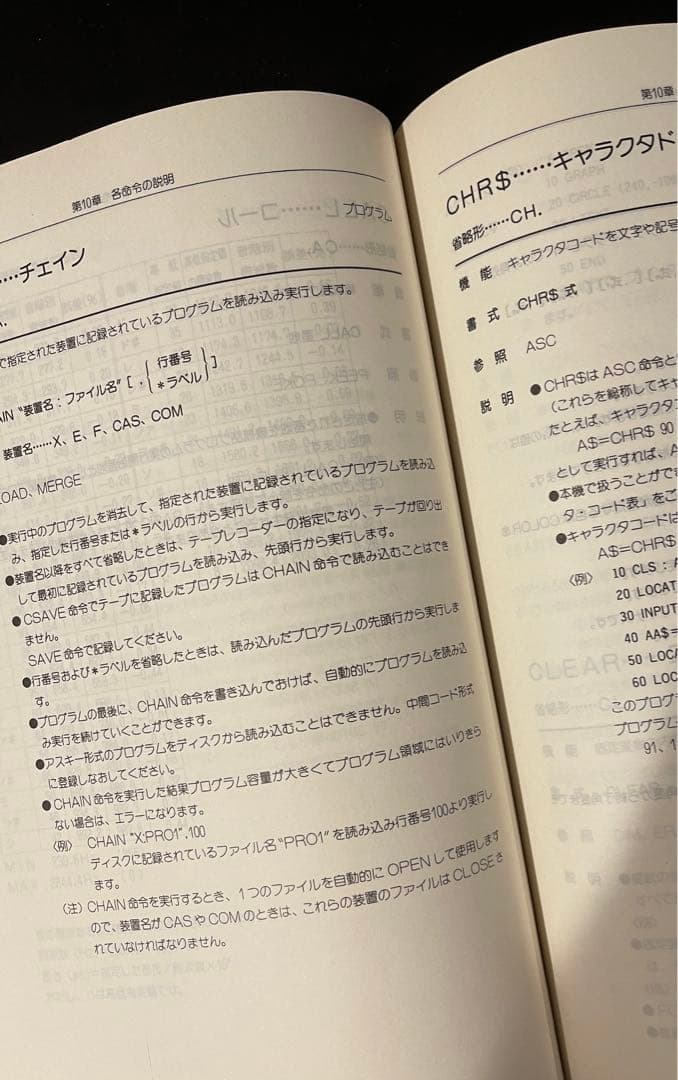 第10章 各命令の説明
プログラム
……チェイン
で指定された装置に記録されているプログラムを読み込み実行します。
AIN "装置名：ファイル名"[，{行番号
＊ラベル}]
装置名……X、E、F、CAS、COM
LOAD、MERGE
●実行中のプログラムを消去して、指定された装置に記録されているプログラムを読み込
み、指定した行番号または＊ラベルの行から実行します。
●装置名以降をすべて省略したときは、テープレコーダーの指定になり、テープが回り出
して最初に記録されているプログラムを読み込み、先頭行から実行します。
●CSAVE命令でテープに記録したプログラムはCHAIN命令で読み込むことはでき
ません。
SAVE命令で記録してください。
●行番号および＊ラベルを省略したときは、読み込んだプログラムの先頭行から実行しま
す。
●プログラムの最後に、CHAIN命令を書き込んでおけば、自動的にプログラムを読み込
み実行を続けていくことができます。
●アスキー形式のプログラムをディスクから読み込むことはできません。中間コード形式
に登録しなおしてください。
●CHAIN命令を実行した結果プログラム容量が大きくてプログラム領域にはいりきら
ない場合は、エラーになります。
〈例〉 CHAIN "X:PRO1",100
ディスクに記録されているファイル名"PRO1"を読み込み行番号100より実行し
ます。
（注）CHAIN命令を実行するとき、1つのファイルを自動的にOPENして使用します
ので、装置名がCASやCOMのときは、これらの装置のファイルはCLOSEさ
れていなければなりません。
第10章
CHR$……キャラクタド
省略形……CH.
機 能 キャラクタコードを文字や記号
書 式 CHR$ 式
参 照 ASC
説 明 ●CHR$はASC命令と
（これらを総称してキャ
たとえば、キャラクタコ
A$=CHR$ 90
として実行すれば、A
●本機で扱うことができ
タ・コード表」をご
●キャラクタコードは
A$=CHR$
〈例〉 10 CLS : A
20 LOCAT
30 INPUT
40 AA$=
50 LOC
60 LOC
このプログ
プログラム
91、1